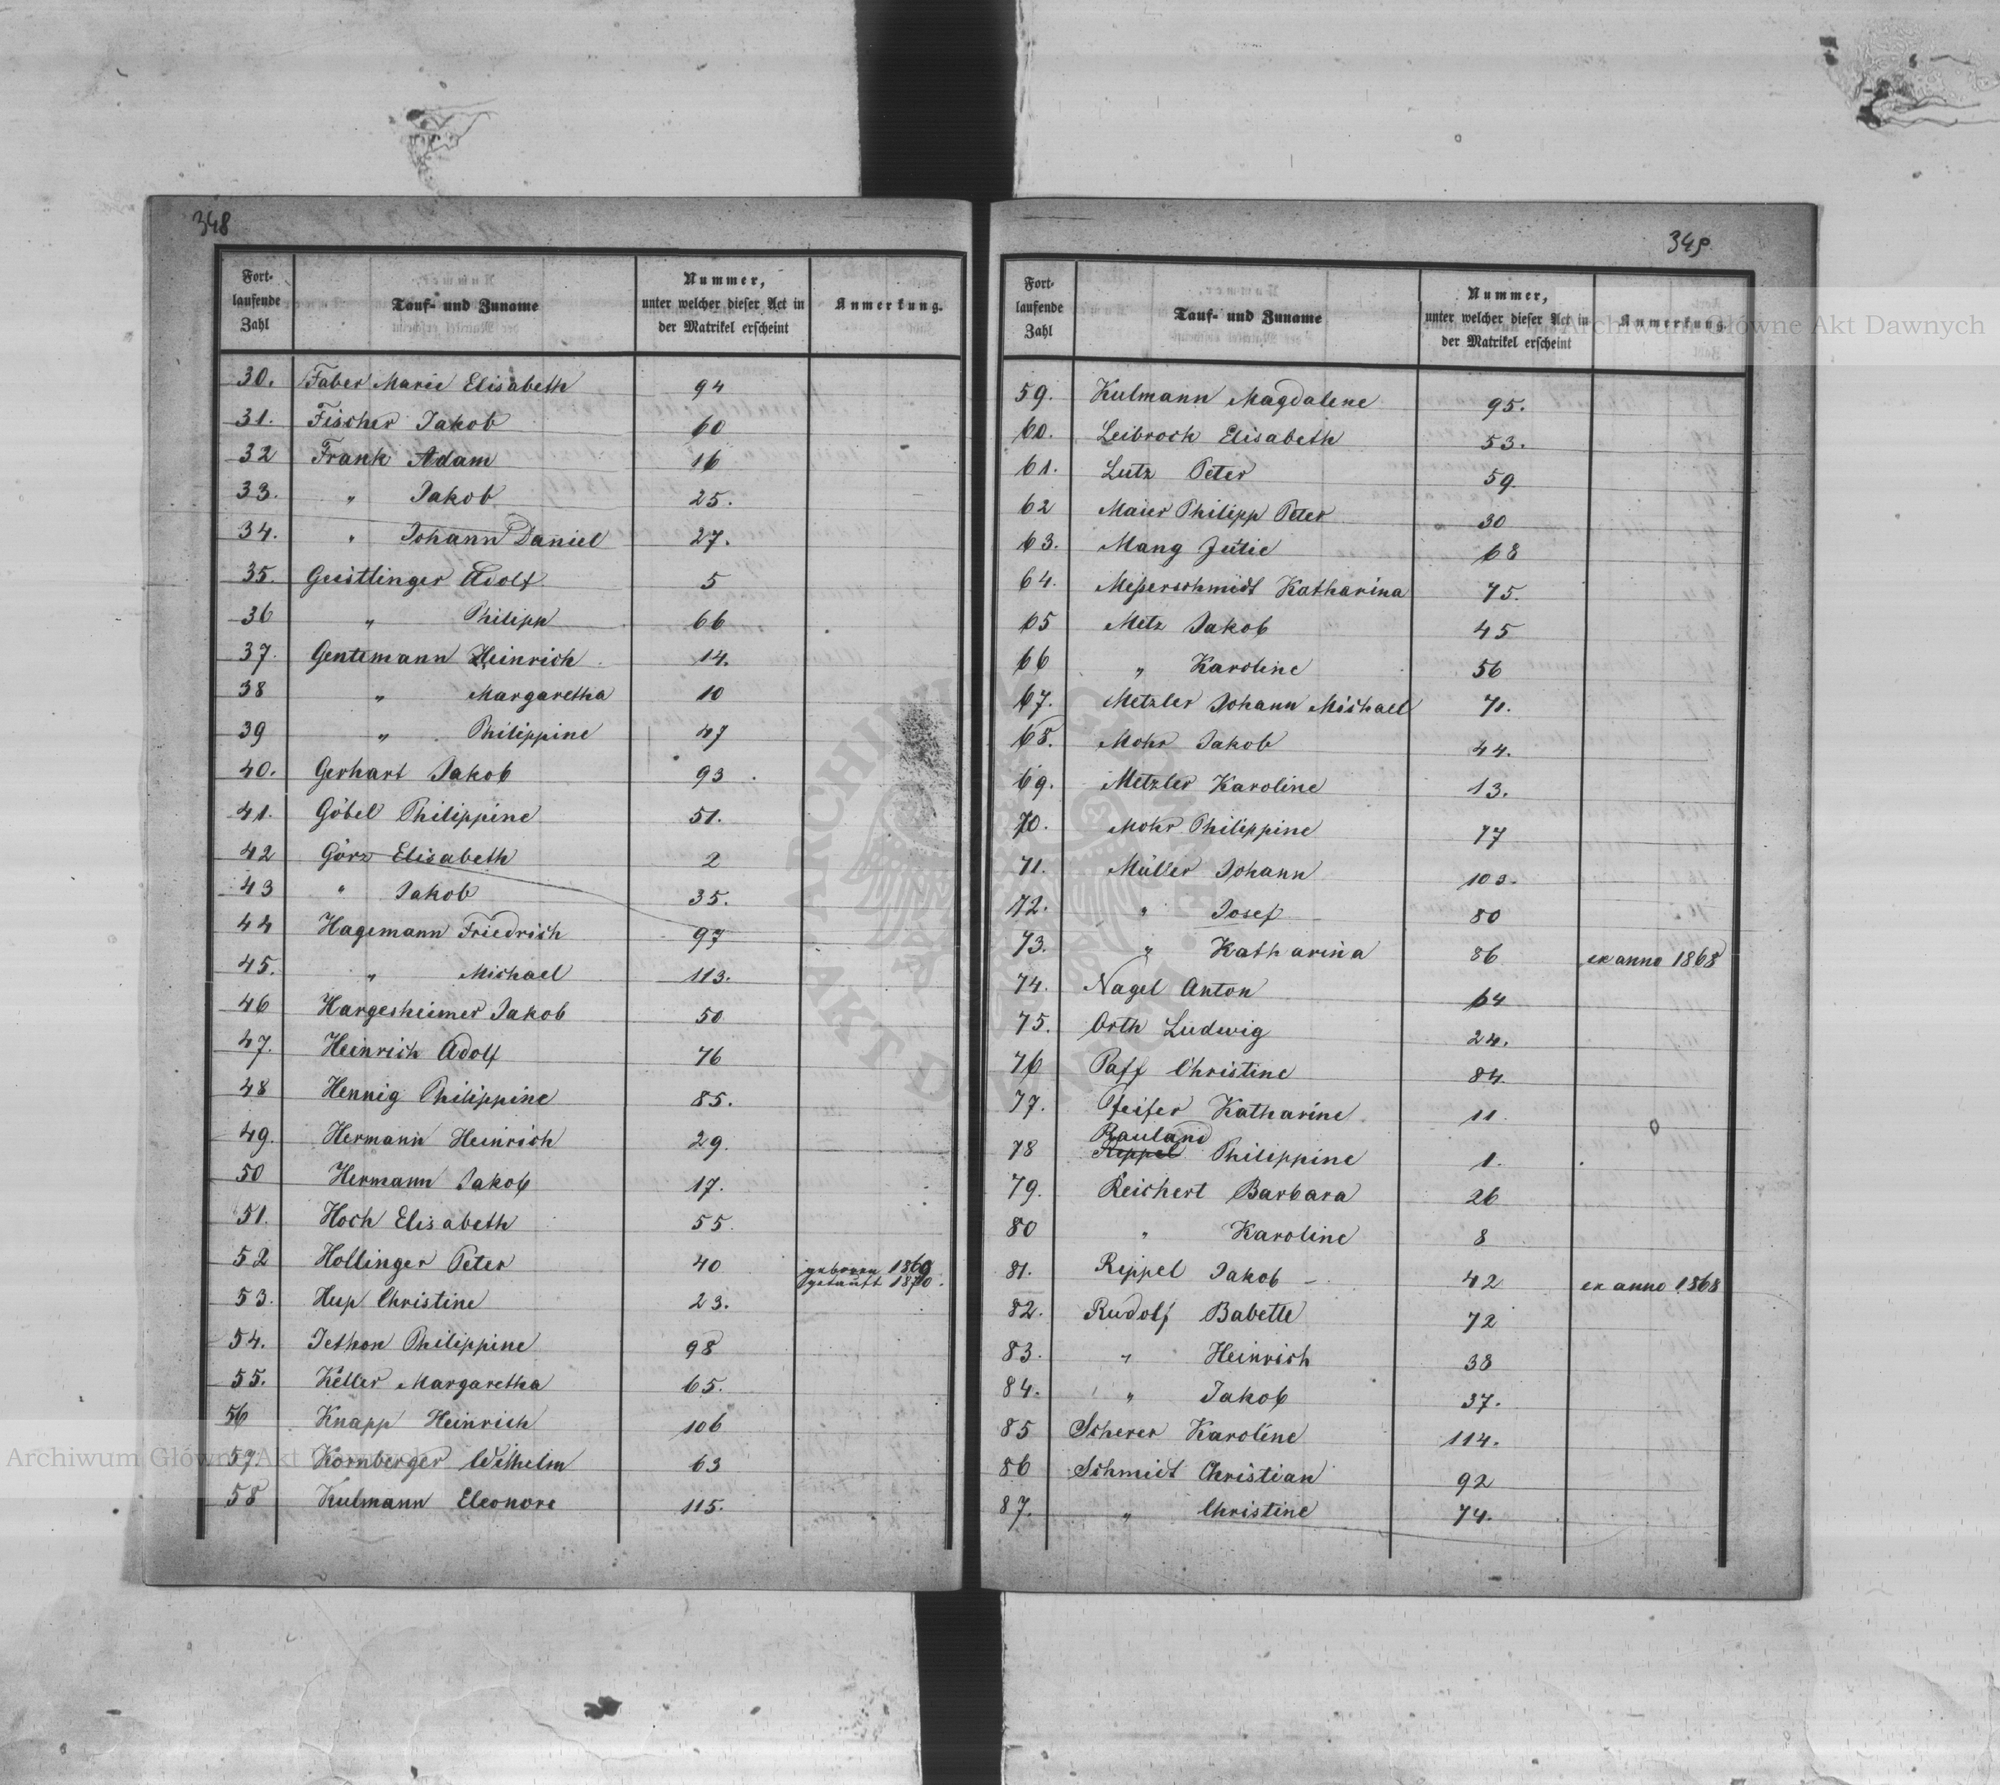 348
Fort-
laufende
Zahl
Tauf- und Zuname
Nummer,
unter welcher dieser Act in
der Matrikel erscheint
Anmerkung.
30. Faber Marie Elisabeth 94
31. Fischer Jakob 60
32 Frank Adam 16
33. " Jakob 25.
34. " Johann Daniel 27.
35. Geistlinger Adolf 5
36 " Philipp 66
37. Gentemann Heinrich 14.
38 " Margaretha 10
39 " Philippine 47
40. Gerhart Jakob 93
41. Göbel Philippine 51.
42 Görz Elisabeth 2
43 " Jakob 35.
44 Hagemann Friedrich 97
45. " Michael 113.
46 Hargesheimer Jakob 50
47. Heinrich Adolf 76
48 Hennig Philippine 85.
49. Hermann Heinrich 29.
50 Hermann Jakob 17.
51. Hoch Elisabeth 55.
52 Hollinger Peter 40 geboren 1869
getauft 1870.
53. Hup Christine 23.
54. Jethon Philippine 98
55. Keller Margaretha 65.
56 Knapp Heinrich 106
57 Kornberger Wilhelm 63
58 Kulmann Eleonore 115.
349.
Fort-
laufende
Zahl
Tauf- und Zuname
Nummer,
unter welcher dieser Act in
der Matrikel erscheint
Anmerkung.
59. Kulmann Magdalene 95.
60. Leibrock Elisabeth 53.
61. Lutz Peter 59.
62 Maier Philipp Peter 30
63. Mang Julie 68
64. Meßerschmidt Katharina 75.
65 Metz Jakob 45
66 " Karoline 56
67. Metzler Johann Michael 71.
68. Mohr Jakob 44.
69. Metzler Karoline 13.
70. Mohr Philippine 77
71. Müller Johann 103.
72. " Josef 80
73. " Katharina 86 ex anno 1868
74. Nagel Anton 64
75. Orth Ludwig 24.
76 Paff Christine 84.
77. Pfeifer Katharine 11.
Rauland
78 Reppel Philippine 1.
79. Reichert Barbara 26
80 " Karoline 8
81. Reppel Jakob 42 ex anno 1868
82. Rudolf Babette 72
83. " Heinrich 38
84. " Jakob 37.
85 Scherer Karoline 114.
86 Schmidt Christian 92
87. " Christine 74.
Archiwum Główne Akt Dawnych
Archiwum Główne Akt Dawnych
ARCHIWUM GŁÓWNE AKT DAWNYCH